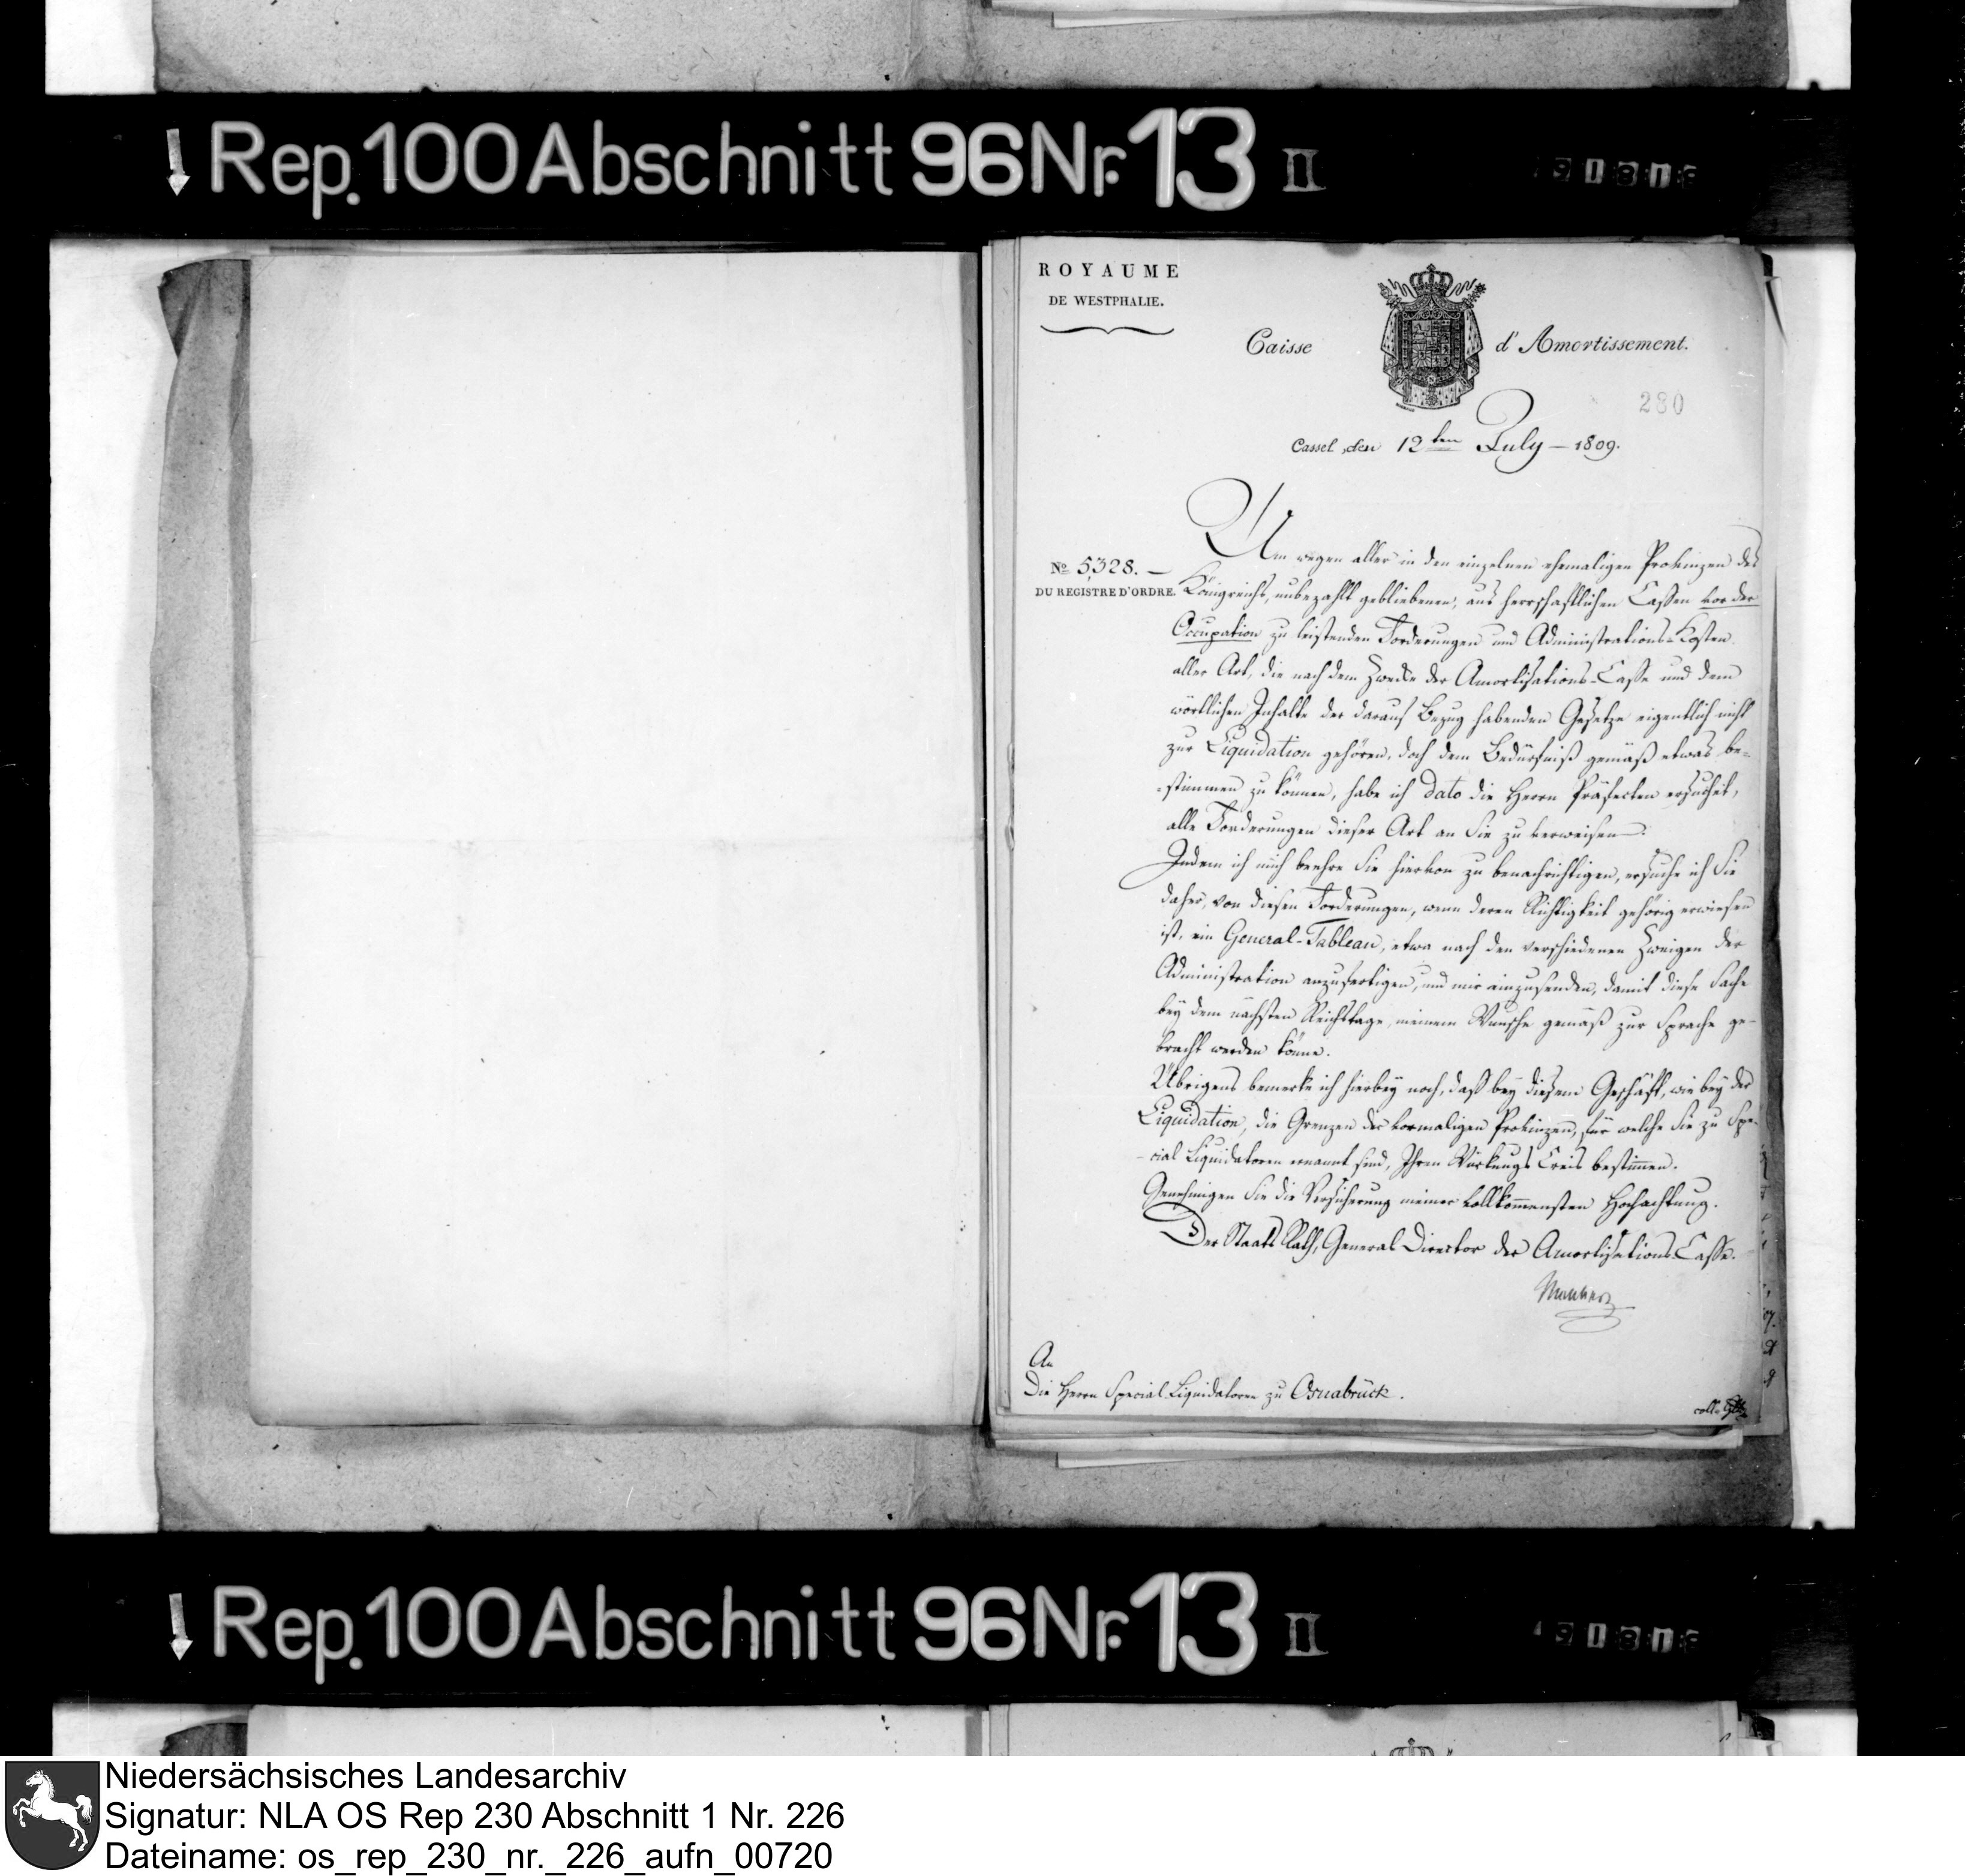 Rep. 100 Abschnitt 96 Nr. 13 II
ROYAUME
DE WESTPHALIE.
Caisse d'Amortissement.
280
Cassel, den 12ten July – 1809.
Um wegen aller in den einzelnen ehemaligen Provinzen des
No 5328. –
DU REGISTRE D'ORDRE.
Königreichs, unbezahlt gebliebenen, aus herrschaftlichen Cassen vor der
Occupation zu leistenden Forderungen und Administrations-Kosten
aller Art, die nach dem Zwecke der Amortisations-Casse und dem
wörtlichen Inhalte der darauf Bezug habenden Gesetze eigentlich nicht
zur Liquidation gehören, doch dem Bedürfniß gemäß etwas be-
-stimmen zu können, habe ich dato die Herrn Präfecten ersucht,
alle Forderungen dieser Art an Sie zu verweisen.
Indem ich mich beehre Sie hiervon zu benachrichtigen, ersuche ich Sie
daher, von diesen Forderungen, wenn deren Richtigkeit gehörig erwiesen
ist, ein General-Tableau, etwa nach den verschiedenen Zweigen der
Administration anzufertigen, und mir einzusenden, damit diese Sache
bey dem nächsten Reichstage, meinem Wunsche gemäß zur Sprache ge-
bracht werden könne.
Übrigens bemerke ich hierbey noch, daß bey diesem Geschäft, wie bey der
Liquidation, die Grenzen der vormaligen Provinzen, für welche Sie zu Spe-
-cial Liquidatoren ernannt sind, Ihren Würkungs Creis bestimmen.
Genehmigen Sie die Versicherung meiner vollkommensten Hochachtung.
Der Staats Rath, General Director der Amortisations Casse.
An
Die Herrn Special Liquidatoren zu Osnabrück.
coll.
Rep. 100 Abschnitt 96 Nr. 13 II
Niedersächsisches Landesarchiv
Signatur: NLA OS Rep 230 Abschnitt 1 Nr. 226
Dateiname: os_rep_230_nr._226_aufn_00720